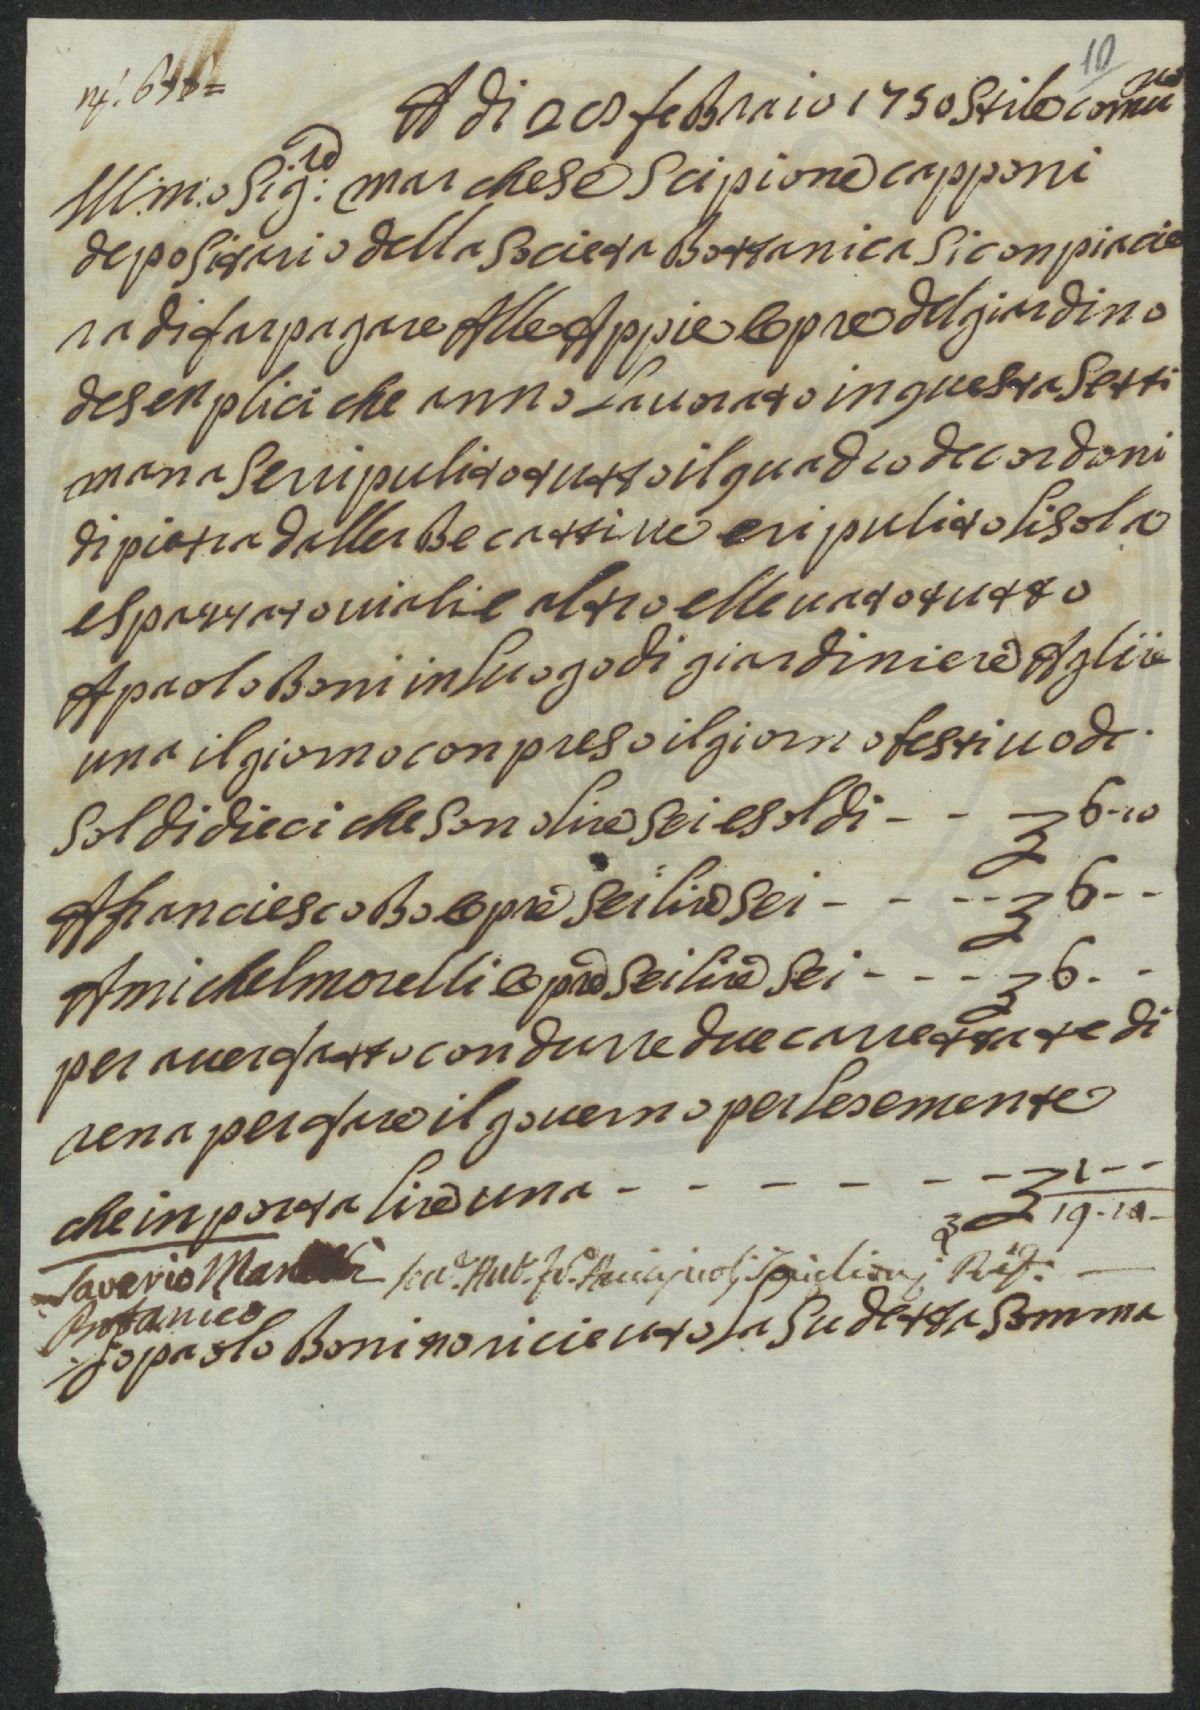 10
A di 28 feBraio 1750 Stile comu
ne
Ill:m:o Sig:re marchese Scipione capponi
depositario della Societa Bottanica Si conpiacie
ra di far pagare Alle Appie opre del giardino
de senplici che anno Lauorato in questa Setti
mana Se ripulito tutto il quadro de cordoni
di pietra dalle erBe cattiue e ripulito lisola
e spazzato uiali e altro e lleuato tutto
A paolo Boni in Luogo di giardiniere A glire
una il giorno conpreso il giorno festiuo di
Soldi dieci che sono lire sei e soldi - - 6-10
A franciesco Bo opre sei lire sei - - - - 6--
A michel morelli opre sei lire sei - - - 6--
per auer fatto condurre due carrettate di
rena per fare il gouerno per le semente
che inporta lire una - - - - - - 1--
19-10-
Saverio Manetti
Botanico
Io paolo Boni o riceuuto la Sudetta Somma